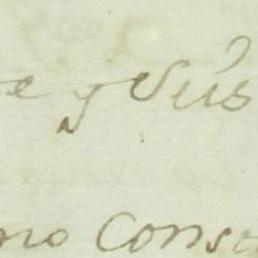 e y sus
no cons